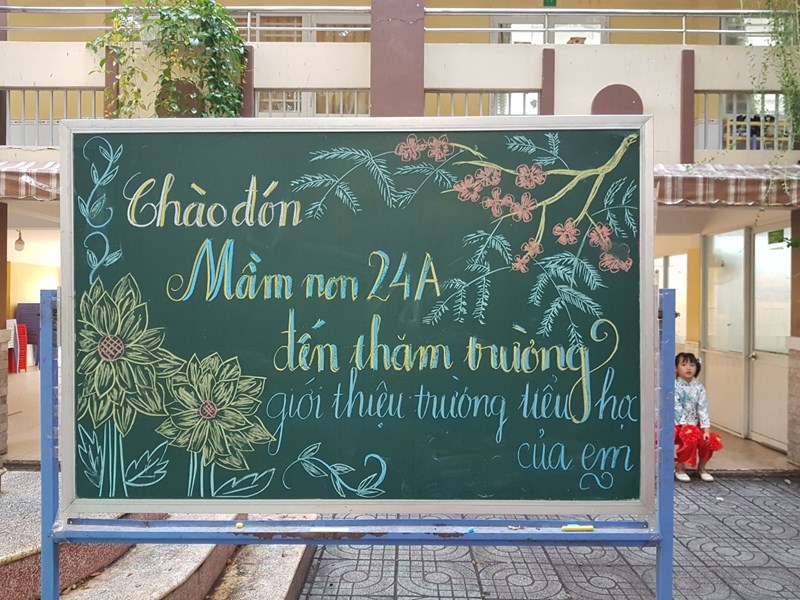 Chào đón
Mầm non 24A
đến thăm trường
giới thiệu trường tiểu họ
của em